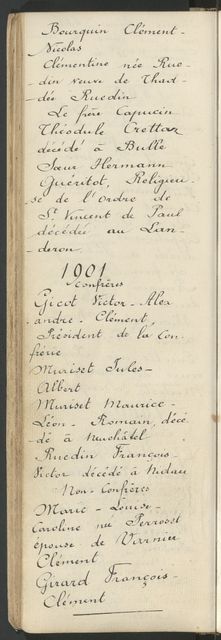 Bourquin Clément-
Nicolas
Clémentine née Rue-
din veuve de Thad-
dée Ruedin
Le frère Capucin
Théodule Crettaz
décédé à Bulle
Sœur Hermann
Guéritot, Religieu-
se de l'Ordre de
St Vincent de Paul
décédée au Lan-
deron.
1901
Confrères
Gicot Victor-Alex
andre-Clément,
Président de la Con-
frérie
Muriset Jules-
Albert
Muriset Maurice-
Léon-Romain, décé-
dé à Neuchâtel
Ruedin François-
Victor décédé à Nidau
Non-Confrères
Marie-Louise-
Caroline née Perroset
épouse de Varnier
Clément
Girard François-
Clément